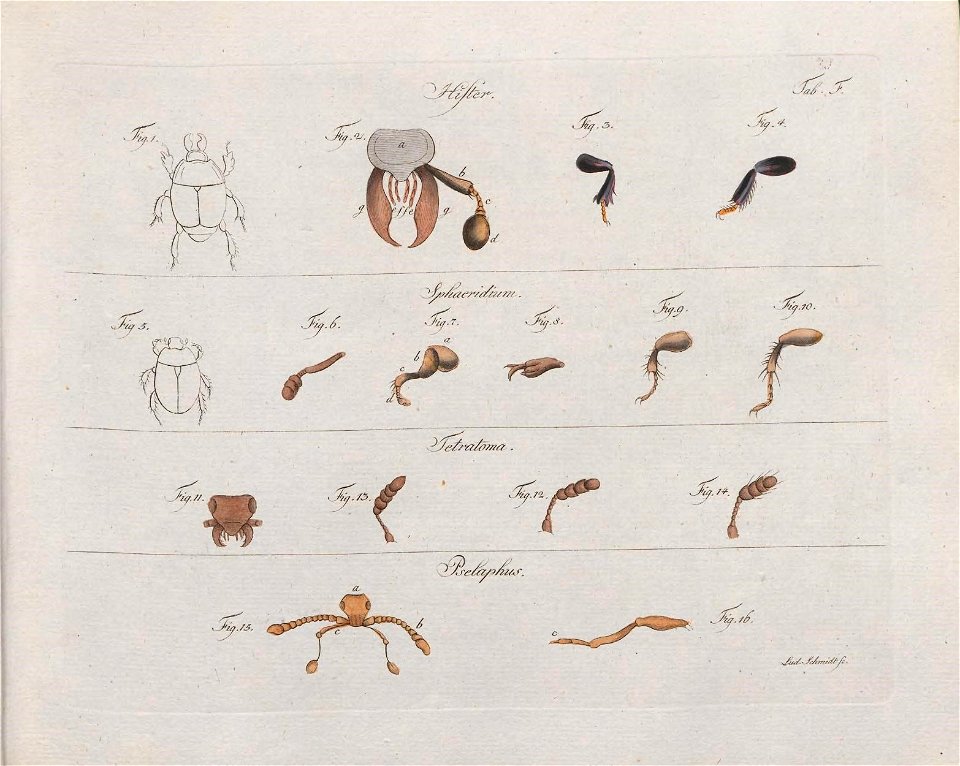 Hister.
Tab. F.
Fig. 1.
Fig. 2.
Fig. 3.
Fig. 4.
a
b
c
g
e f f e
g
d
Sphaeridium.
Fig. 5.
Fig. 6.
Fig. 7.
Fig. 8.
Fig. 9.
Fig. 10.
a
b
c
d
Tetratoma.
Fig. 11.
Fig. 13.
Fig. 12.
Fig. 14.
Pselaphus.
a
Fig. 15.
c
b
c
Fig. 16.
Lud. Schmidt sc.